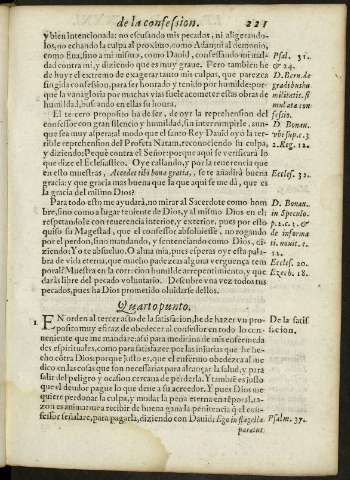 de la confession. 221
y bien intencionada: no escusando mis pecados, ni aligerando-
los, no echando la culpa al proximo, como Adan; ni al demonio,
como Eua, sino a mi mismo, como Dauid, confessando mi mal- Psal. 31.
dad contra mi, y diziendo que es muy graue. Pero tambien he & 24.
de huyr el extremo de exagerar tanto mis culpas, que parezca D. Bern. de
fingida confession, para ser honrado y tenido por humilde: por- gradibus hu
que la vanagloria por muchas vias suele acometer estas obras de militatis. si
humildad, buscando en ellas su honra. mulata con
El tercero proposito ha de ser, de oyr la reprehension del fessio.
confessor con gran silencio y humildad, sin interrumpirle, aun- D. Bonau.
que sea muy aspera; al modo que el santo Rey Dauid oyo la ter- vbi sup. c. 3
rible reprehension del Profeta Natam, reconociendo su culpa, 2. Reg. 12.
y diziendo: Pequè contra el Señor: porque aqui se verificarà lo
que dize el Ecclesiastico. Oye callando, y por la reuerencia que
en esto muestras, Accedet tibi bona gratia, se te añadirà buena Eccles. 32.
gracia: y que gracia mas buena que la que aqui se me dà, que es
la gracia del mismo Dios?
Para todo esto me ayudarà, no mirar al Sacerdote como hom D. Bonau.
bre, sino como a lugar teniente de Dios, y al mismo Dios en el: in speculo.
respetandole con reuerencia interior, y exterior, pues por esto p. 2. c. 2. &
quiso su Magestad, que el confessor absoluiesse, no rogando de informa
por el perdon, sino mandando, y sentenciando como Dios, di- ti. nouit. c.
ziendo: Yo te absueluo. O alma mia, pues esperas oyr esta pala- 12.
bra de vida eterna, que mucho padezcas alguna verguença tem Eccles. 20.
poral? Muestra en la correcion humilde arrepentimiento, y que Ezech. 18.
daràs libre del pecado voluntario. Descubre vna vez todos tus
pecados, pues ha Dios prometido oluidarse dellos.
Quarto punto.
1. EN orden al tercer acto de la satisfacion, he de hazer vn pro- De la satis
posito muy eficaz de obedecer al confessor en todo lo con- facion.
ueniente que me mandare: assi para medicina de mis enfermeda
des espirituales, como para satisfazer por las injurias que he he-
cho côtra Dios: porque justo es, que el enfermo obedezca al me
dico en las cosas que son necessarias para alcançar la salud, y para
salir del peligro y ocasion cercana de perderla. Y tambiê es justo
que el deudor pague lo que deue a su acreedor. Y pues Dios me
quiere perdonar la culpa, y mudar la pena eterna en têporal, ra-
zon es animarme a recibir de buena gana la penitencia q̃ el con-
fessor señalare, para pagarla, diziendo con Dauid: Ego in flagella Psalm. 37.
paratus